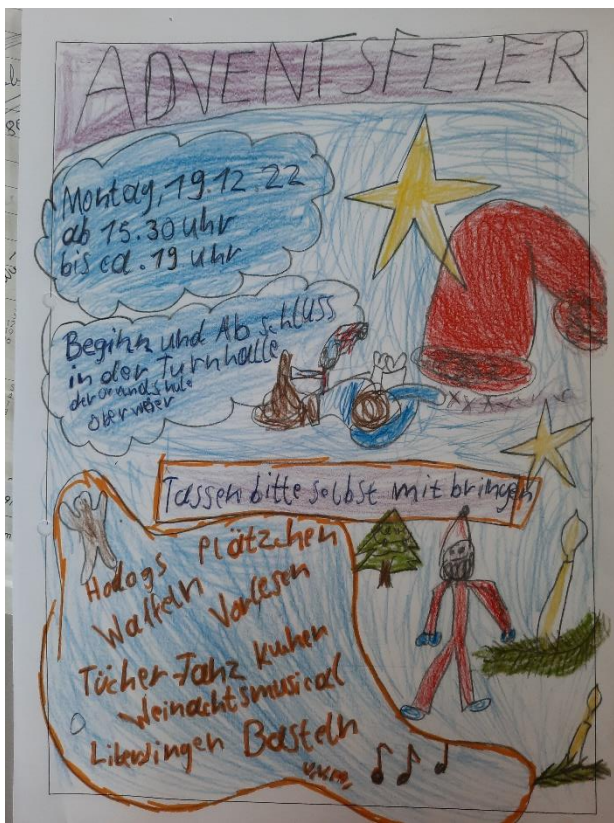 ADVENTSFEiER
Montag, 19.12.22
ab 15.30 Uhr
bis ca. 19 Uhr
Beginn und Abschluss
in der Turnhalle
der Grundschule
Oberweier
Tassen bitte selbst mitbringen
Hodogs Plätzchen
Waffeln Vorlesen
Tücher-Tanz Kuchen
Weinachtsmusical
Basteln
u.v.m.